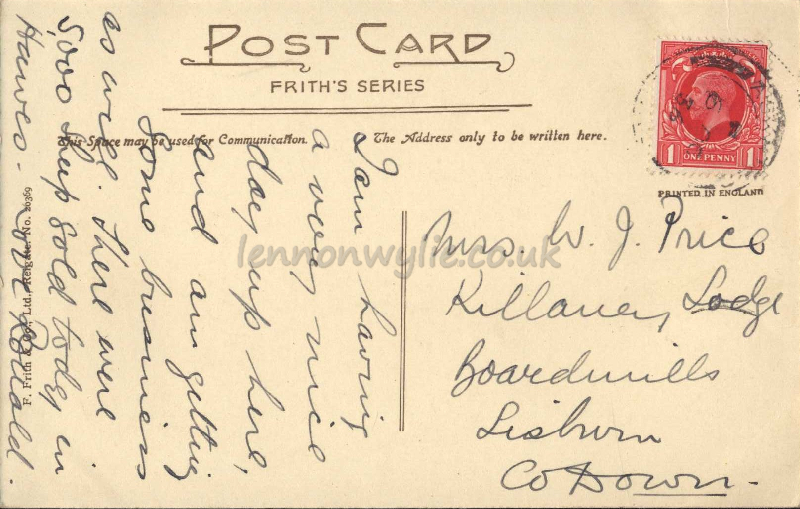 POST CARD
FRITH'S SERIES
This Space may be used for Communication.
The Address only to be written here.
ONE PENNY
1 1
PRINTED IN ENGLAND
I am having
a very nice
day up here,
and am getting
some business
as well. There were
5,000 sheep sold today in
Hawes - Love Ronald.
Mrs. W. J. Price
Killaney Lodge
Boardmills
Lisburn
Co Down.
F. Frith & Co., Ltd., Reigate. No. 26369
lennonwylie.co.uk